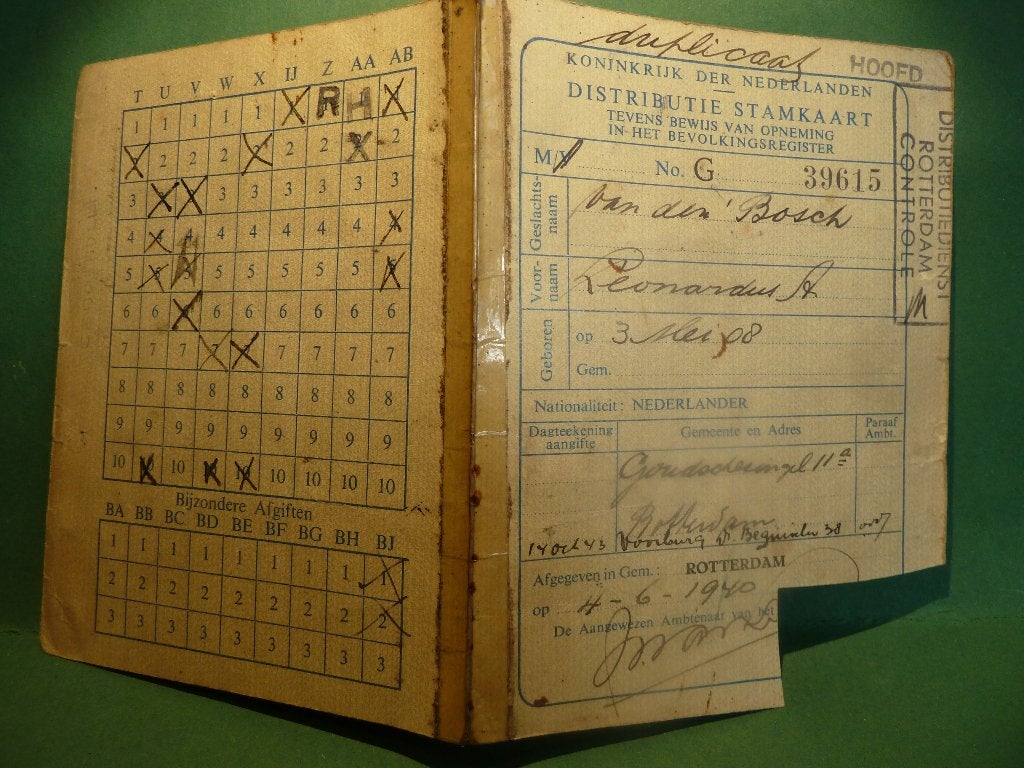 T U V W X IJ Z AA AB
1 1 1 1 1 R H
2 2 2 2 2 2
3 3 3 3 3 3 3
4 4 4 4 4 4 4 4
5 5 5 5 5 5 5 5
6 6 6 6 6 6 6 6
7 7 7 7 7 7 7 7 7
8 8 8 8 8 8 8 8 8
9 9 9 9 9 9 9 9 9
10 10 10 10 10 10 10 10 10
Bijzondere Afgiften
BA BB BC BD BE BF BG BH BJ
1 1 1 1 1 1 1 1 1
2 2 2 2 2 2 2 2 2
3 3 3 3 3 3 3 3 3
duplicaat
HOOFD
KONINKRIJK DER NEDERLANDEN
DISTRIBUTIE STAMKAART
TEVENS BEWIJS VAN OPNEMING
IN HET BEVOLKINGSREGISTER
M/V No. G 39615
Geslachts-
naam
van den Bosch
Voor-
naam
Leonardus A
Geboren
op 3 Mei 08
Gem.
Nationaliteit: NEDERLANDER
Dagteekening
aangifte
Gemeente en Adres
Paraaf
Ambt.
Goudschesingel 11a
Rotterdam
14 Oct 43 Voorburg 38
Afgegeven in Gem.: ROTTERDAM
op 4-6-1940
De Aangewezen Ambtenaar van het
DISTRIBUTIEDIENST
ROTTERDAM
CONTROLE
M